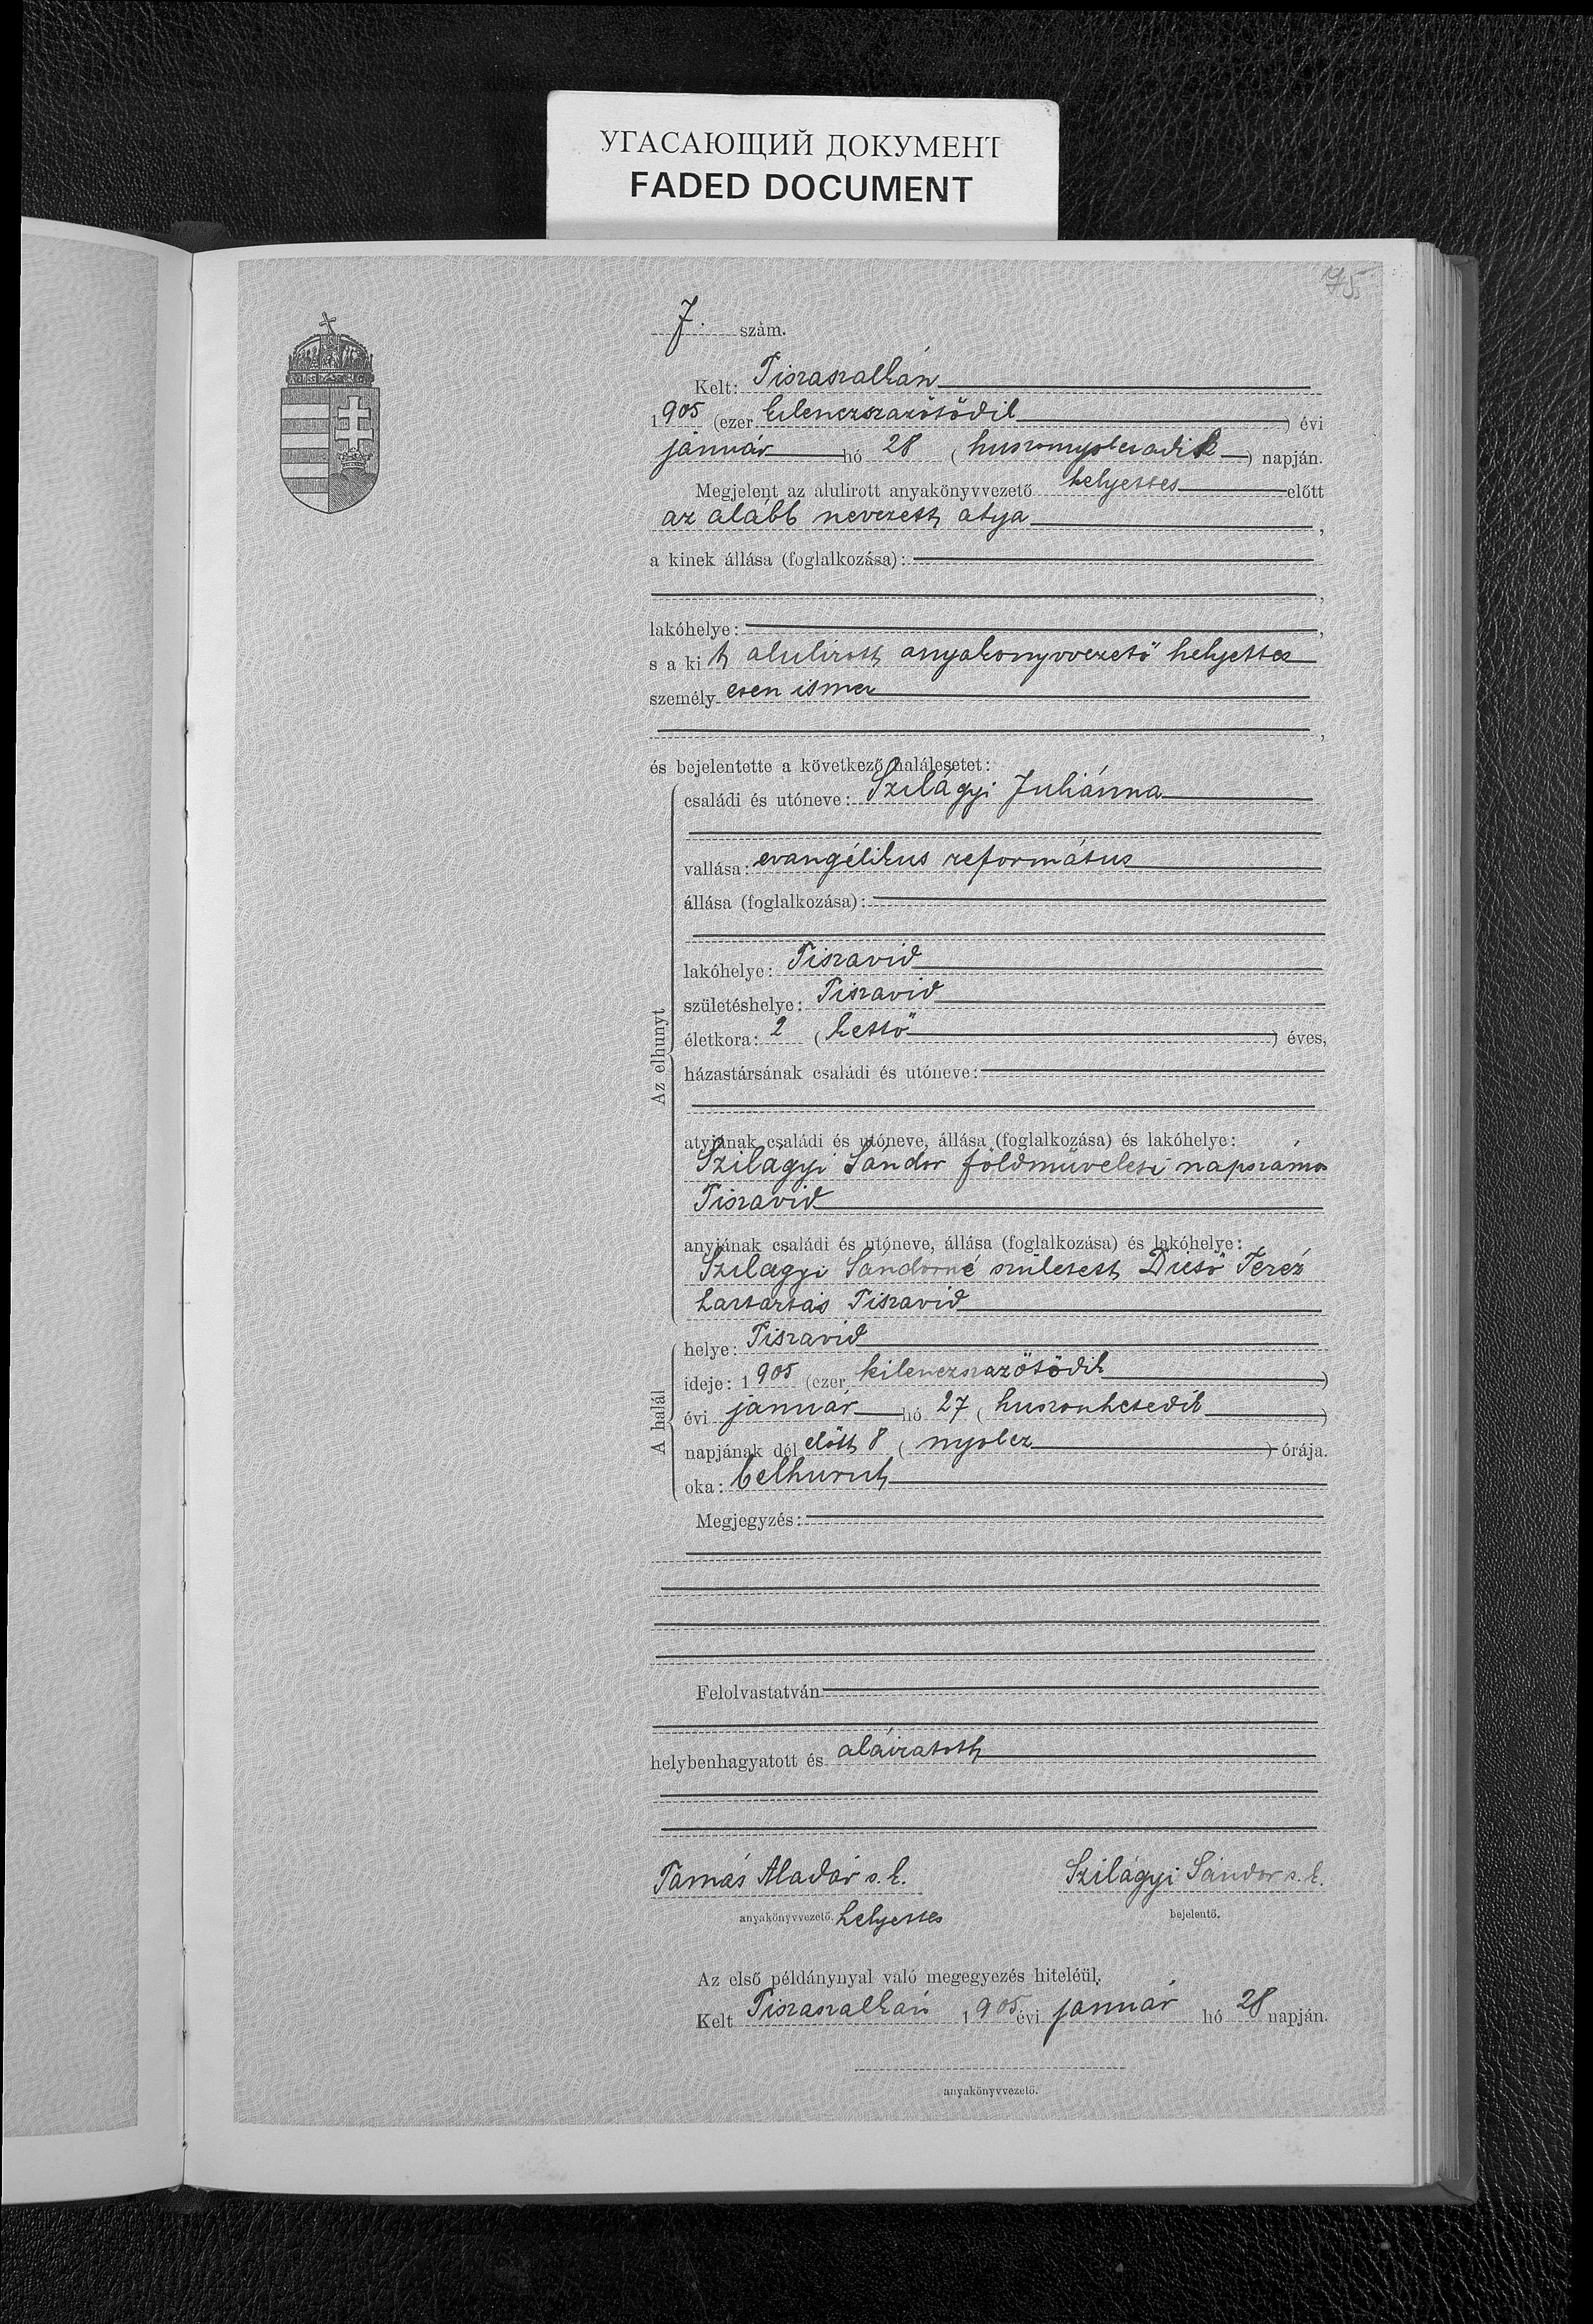 УГАСАЮЩИЙ ДОКУМЕНТ
FADED DOCUMENT
75
7. szám.
Kelt: Tiszaszalkán
1905 (ezer kilenczszázötödik) évi
január hó 28 (huszonnyolczadik) napján.
Megjelent az alulirott anyakönyvvezető helyettes előtt
az alább nevezett atya,
a kinek állása (foglalkozása):
,
lakóhelye: ,
s a kit alulirott anyakönyvvezető helyettes
személyesen ismer
,
és bejelentette a következő halálesetet:
Az elhunyt
családi és utóneve: Szilágyi Juliánna
vallása: evangélikus református
állása (foglalkozása):
lakóhelye: Tiszavid
születéshelye: Tiszavid
életkora: 2 (kettő) éves,
házastársának családi és utóneve:
atyjának családi és utóneve, állása (foglalkozása) és lakóhelye:
Szilágyi Sándor földmüvelési napszámos
Tiszavid
anyjának családi és utóneve, állása (foglalkozása) és lakóhelye:
Szilágyi Sándorné született Teréz
Tiszavid
A halál
helye: Tiszavid
ideje: 1905 (ezer kilenczszázötödik)
évi január hó 27 (huszonhetedik)
napjának dél előtt 8 (nyolcz) órája.
oka: belhurut
Megjegyzés:
Felolvastatván
helybenhagyatott és aláiratott
Tamás Aladár s. k. Szilágyi Sándor s. k.
anyakönyvvezető. helyettes bejelentő.
Az első példánynyal való megegyezés hiteléül.
Kelt Tiszaszalkán 1905 évi január hó 28 napján.
anyakönyvvezető.